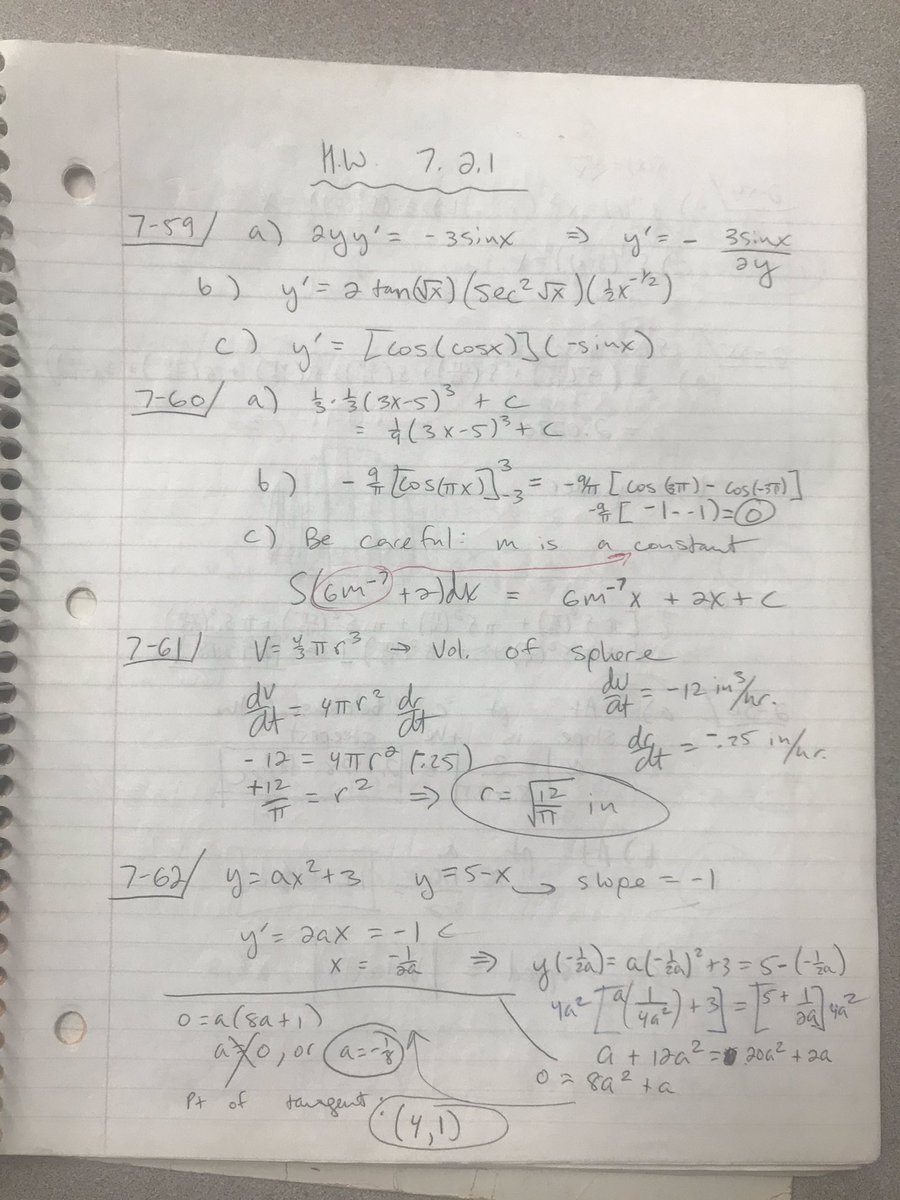 H.W. 7.2.1
7-59/ a) 2yy' = -3sinx ⇒ y' = - 3sinx/2y
b) y' = 2 tan(√x)(sec²√x)(½x^-1/2)
c) y' = [cos(cosx)](-sinx)
7-60/ a) ⅓·⅓(3x-5)³ + C
= 1/9(3x-5)³ + C
b) -9/π [cos(πx)]³₋₃ = -9/π [cos(3π) - cos(-3π)]
-9/π [-1--1) = 0
c) Be careful: m is a constant
∫(6m⁻⁷ + 2)dx = 6m⁻⁷x + 2x + C
7-61/ V = 4/3πr³ → Vol. of sphere
dv/dt = 4πr² dr/dt dv/dt = -12 in³/hr.
-12 = 4πr² (-.25) dr/dt = -.25 in/hr.
+12/π = r² ⇒ r = √12/π in
7-62/ y = ax²+3 y = 5-x → slope = -1
y' = 2ax = -1
x = -1/2a ⇒ y(-1/2a) = a(-1/2a)² + 3 = 5-(-1/2a)
4a² [a(1/4a²) + 3] = [5 + 1/2a] 4a²
a + 12a² = 20a² + 2a
0 = 8a² + a
0 = a(8a+1)
a=0, or a = -1/8
Pt of tangent: (4,1)